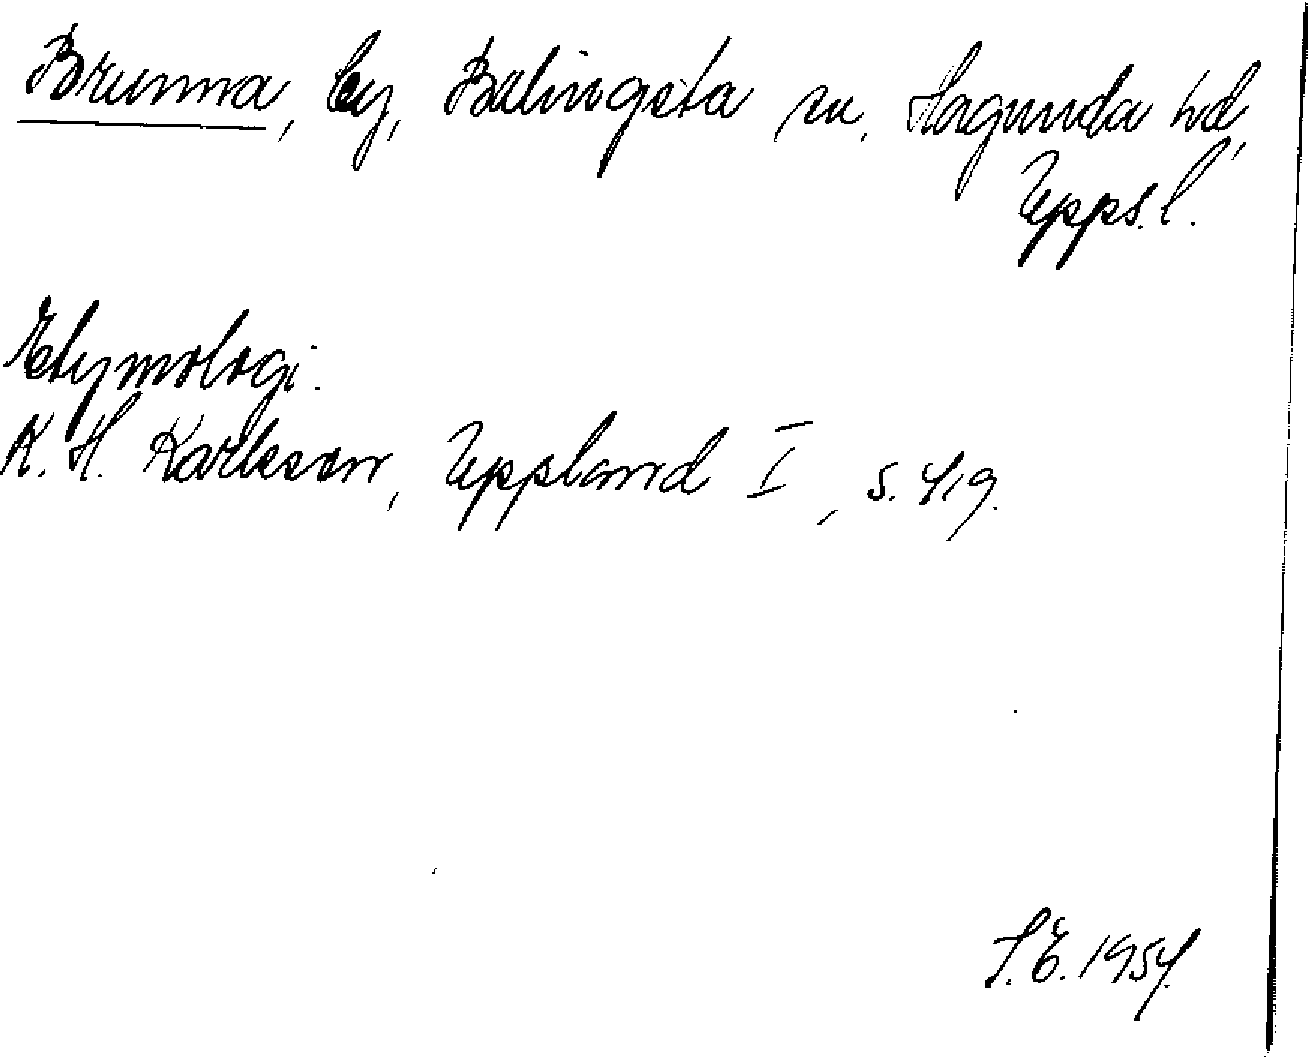 Brunna, by, Balingsta sn, Hagunda hd,
Upps. l.
Etymologi.
K. H. Karlsson, Uppland I, s. 419.
S. E. 1954.